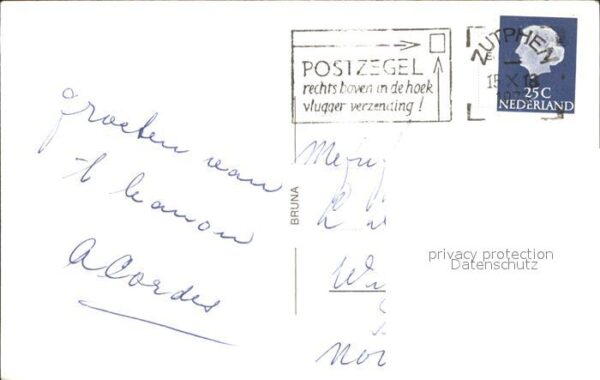 POSTZEGEL
rechts boven in de hoek
vlugger verzending!
ZUTPHEN
15 X 18
25 C
NEDERLAND
groeten van
't kanon
A Cordes
BRUNA
privacy protection
Datenschutz